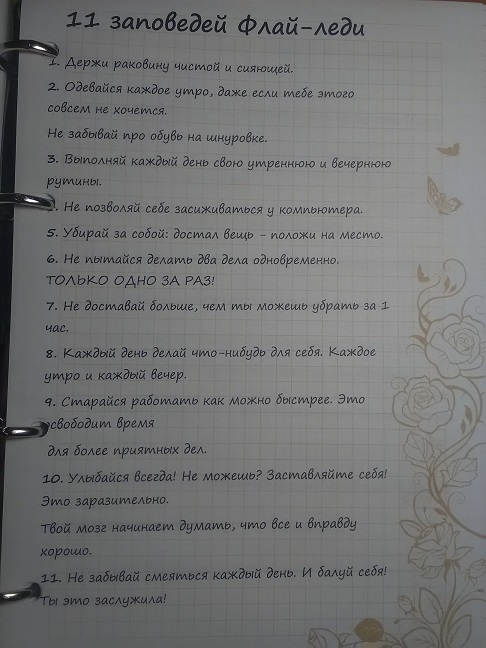 11 заповедей Флай-леди
1. Держи раковину чистой и сияющей.
2. Одевайся каждое утро, даже если тебе этого
совсем не хочется.
Не забывай про обувь на шнуровке.
3. Выполняй каждый день свою утреннюю и вечернюю
рутины.
4. Не позволяй себе засиживаться у компьютера.
5. Убирай за собой: достал вещь – положи на место.
6. Не пытайся делать два дела одновременно.
ТОЛЬКО ОДНО ЗА РАЗ!
7. Не доставай больше, чем ты можешь убрать за 1
час.
8. Каждый день делай что-нибудь для себя. Каждое
утро и каждый вечер.
9. Старайся работать как можно быстрее. Это
освободит время
для более приятных дел.
10. Улыбайся всегда! Не можешь? Заставляйте себя!
Это заразительно.
Твой мозг начинает думать, что все и вправду
хорошо.
11. Не забывай смеяться каждый день. И балуй себя!
Ты это заслужила!